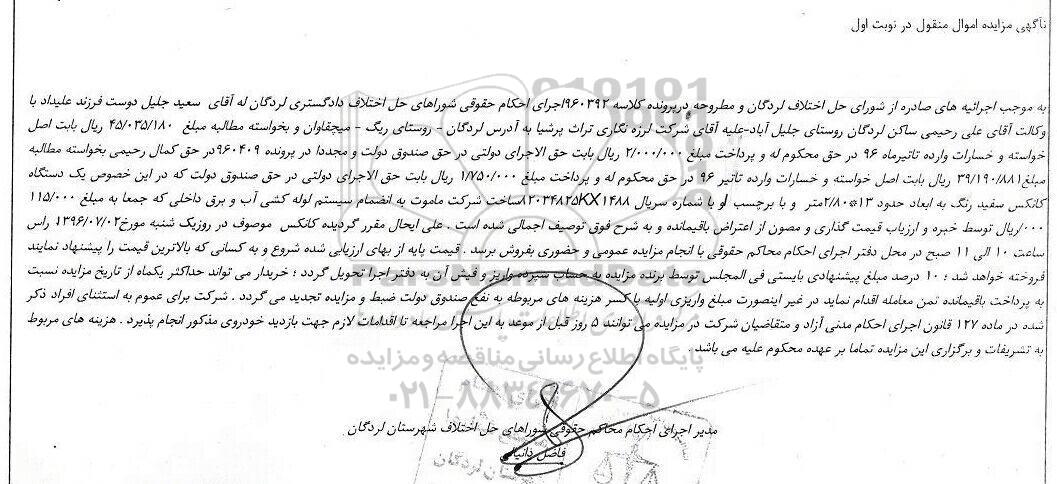 آگهی مزایده اموال منقول در نوبت اول
به موجب اجرائیه های صادره از شورای حل اختلاف لردگان و مطروحه درپرونده کلاسه ۹۶۰۳۹۲اجرای احکام حقوقی شوراهای حل اختلاف دادگستری لردگان له آقای سعید جلیل دوست فرزند علیداد با
وکالت آقای علی رحیمی ساکن لردگان روستای جلیل آباد-علیه آقای شرکت لرزه نگاری تراث پرشیا به آدرس لردگان - روستای ریگ - میچقاوان و بخواسته مطالبه مبلغ ۴۵/۰۳۵/۱۸۰ ریال بابت اصل
خواسته و خسارات وارده تاثیرماه ۹۶ در حق محکوم له و پرداخت مبلغ ۲/۰۰۰/۰۰۰ ریال بابت حق الاجرای دولتی در حق صندوق دولت و مجددا در پرونده ۹۶۰۴۰۹در حق کمال رحیمی بخواسته مطالبه
مبلغ۳۹/۱۹۰/۸۸۱ ریال بابت اصل خواسته و خسارات وارده تاتیر ۹۶ در حق محکوم له و پرداخت مبلغ ۱/۷۵۰/۰۰۰ ریال بابت حق الاجرای دولتی در حق صندوق دولت که در این خصوص یک دستگاه
کانکس سفید رنگ به ابعاد حدود ۱۳*۲/۸۰متر و با برچسب او با شماره سریال ۸۲۰۳۴۸۲۵KX۱۴۸۸ساخت شرکت ماموت به انضمام سیستم لوله کشی آب و برق داخلی که جمعا به مبلغ ۱۱۵/۰۰۰
/۰۰۰ریال توسط خبره و ارزیاب قیمت گذاری و مصون از اعتراض باقیمانده و به شرح فوق توصیف اجمالی شده است . علی ایحال مقرر گردیده کانکس موصوف در روزیک شنبه مورخ۱۳۹۶/۰۷/۰۲ راس
ساعت ۱۰ الی ۱۱ صبح در محل دفتر اجرای احکام محاکم حقوقی با انجام مزایده عمومی و حضوری بفروش برسد . قیمت پایه از بهای ارزیابی شده شروع و به کسانی که بالاترین قیمت را پیشنهاد نمایند
فروخته خواهد شد ؛ ۱۰ درصد مبلغ پیشنهادی بایستی فی المجلس توسط برنده مزایده به حساب سپرده واریز و فیش آن به دفتر اجرا تحویل گردد ؛ خریدار می تواند حداکثر یکماه از تاریخ مزایده نسبت
به پرداخت باقیمانده ثمن معامله اقدام نماید در غیر اینصورت مبلغ واریزی اولیه با کسر هزینه های مربوطه به نفع صندوق دولت ضبط و مزایده تجدید می گردد . شرکت برای عموم به استثنای افراد ذکر
شده در ماده ۱۲۷ قانون اجرای احکام مدنی آزاد و متقاضیان شرکت در مزایده می توانند ۵ روز قبل از موعد به این اجرا مراجعه تا اقدامات لازم جهت بازدید خودروی مذکور انجام پذیرد . هزینه های مربوط
به تشریفات و برگزاری این مزایده تماما بر عهده محکوم علیه می باشد .
پایگاه اطلاع رسانی مناقصه و مزایده
۰۲۱-۸۸۳۴۹۶۷۰-۵
مدیر اجرای احکام محاکم حقوقی شوراهای حل اختلاف شهرستان لردگان
فاضل دانیالی